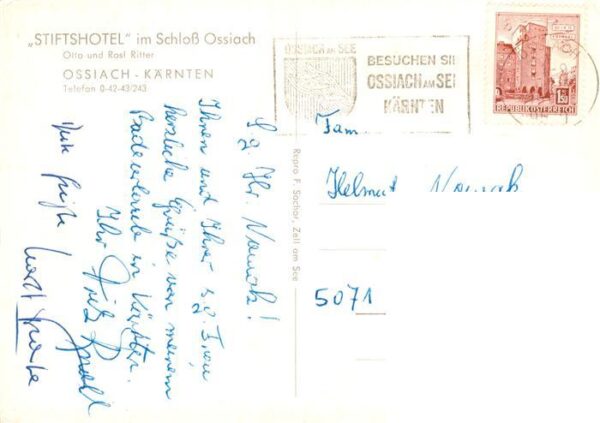 „STIFTSHOTEL" im Schloß Ossiach
Otto und Rosl Ritter
OSSIACH - KÄRNTEN
Telefon 0-42-43/243
OSSIACH AM SEE
BESUCHEN SIE
OSSIACH AM SEE
KÄRNTEN
1.50
REPUBLIK ÖSTERREICH
S g. Hr. Nowak!
Ihnen und Ihrer s.g. Frau
herzliche Grüße von meinem
Badeurlaub in Kärnten.
Ihr Fritz
Viele Grüße
Repro F. Sochor, Zell am See
Fam.
Helmut Nowak
5071